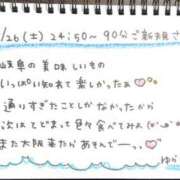 /26(土) 24:50~90分ご新規さ
岐阜の美味しいもの
いっぱい知れて楽しかったぁ♡
通りすぎたことしかなかったから
次はてどまって色々食べてみよ(°。°)
また大阪来たらあそんでー、、♡
ゆら